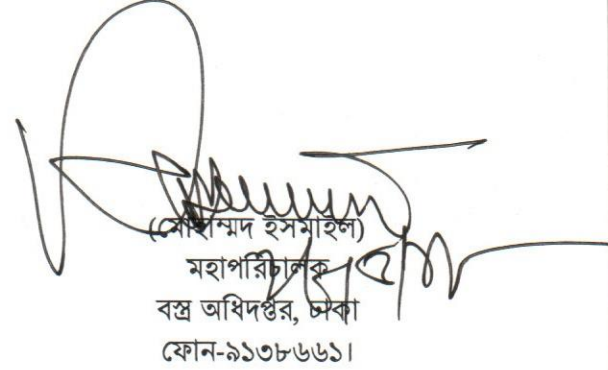 (মোহাম্মদ ইসমাইল)
মহাপরিচালক
বস্ত্র অধিদপ্তর, ঢাকা
ফোন-৯১৩৮৬৬১।